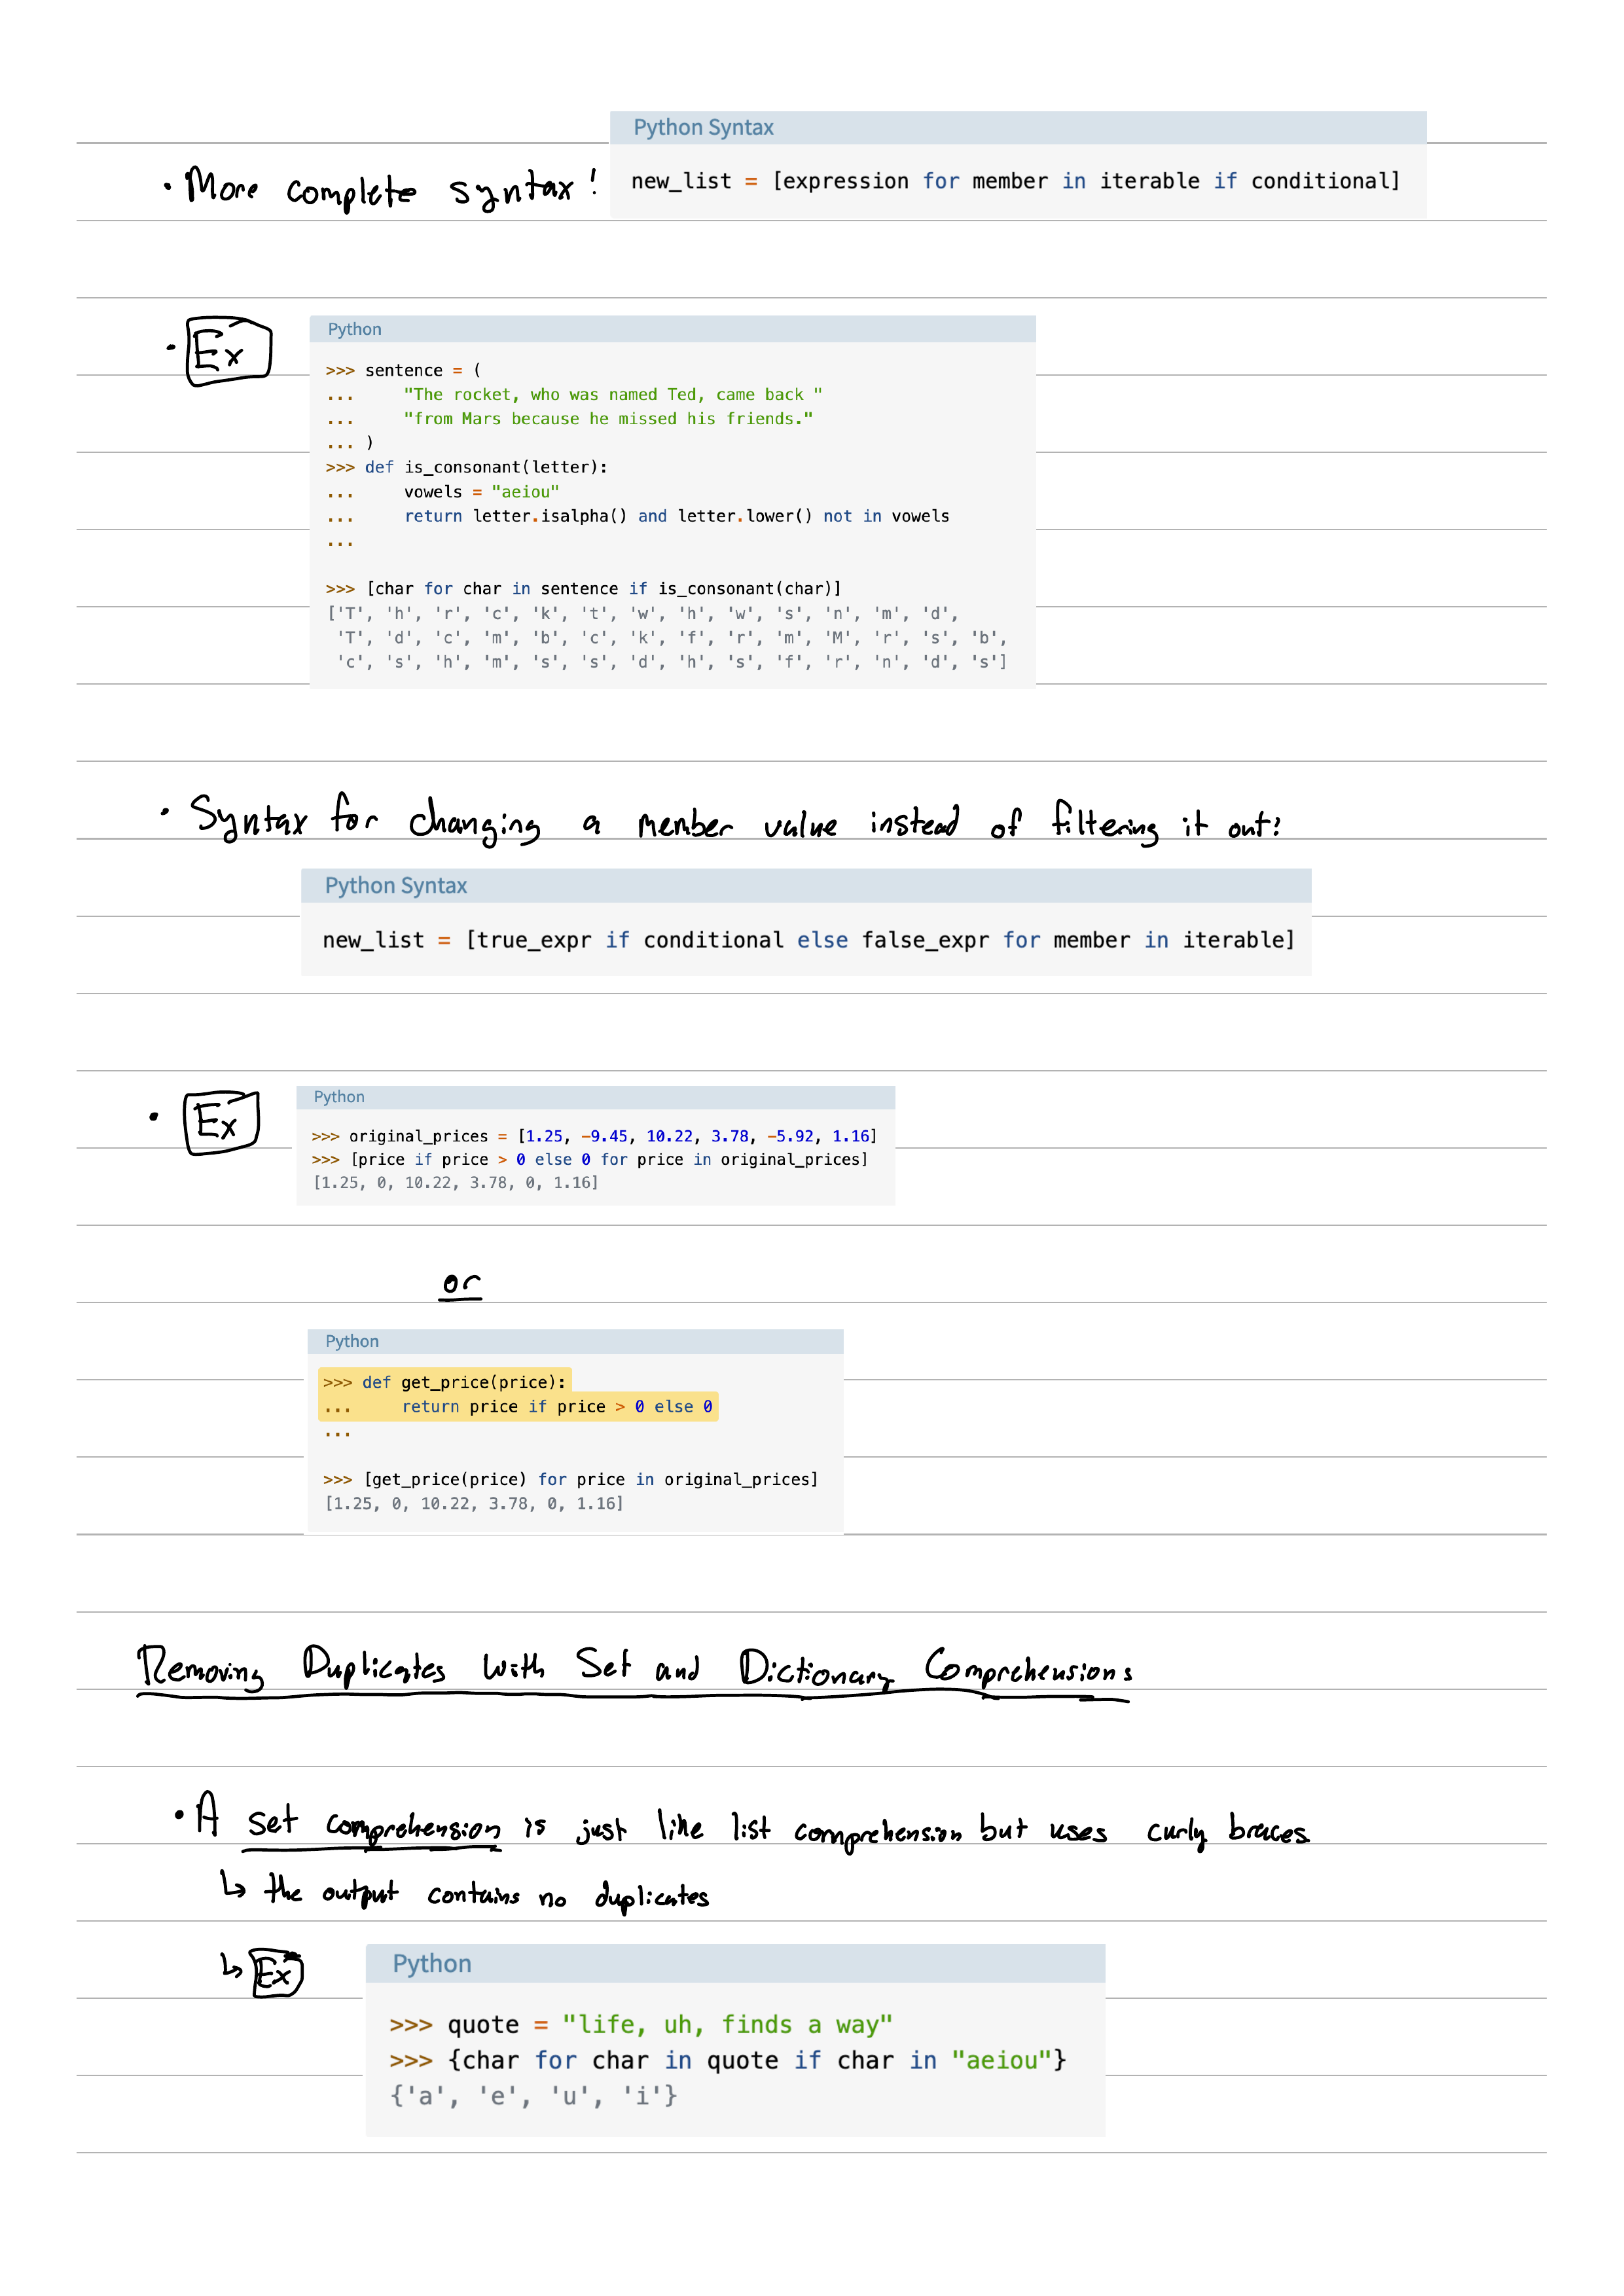 Python Syntax
• More complete syntax: new_list = [expression for member in iterable if conditional]
• Ex
Python
>>> sentence = (
...     "The rocket, who was named Ted, came back "
...     "from Mars because he missed his friends."
... )
>>> def is_consonant(letter):
...     vowels = "aeiou"
...     return letter.isalpha() and letter.lower() not in vowels
...
>>> [char for char in sentence if is_consonant(char)]
['T', 'h', 'r', 'c', 'k', 't', 'w', 'h', 'w', 's', 'n', 'm', 'd',
 'T', 'd', 'c', 'm', 'b', 'c', 'k', 'f', 'r', 'm', 'M', 'r', 's', 'b',
 'c', 's', 'h', 'm', 's', 's', 'd', 'h', 's', 'f', 'r', 'n', 'd', 's']
• Syntax for changing a member value instead of filtering it out:
Python Syntax
new_list = [true_expr if conditional else false_expr for member in iterable]
• Ex
Python
>>> original_prices = [1.25, -9.45, 10.22, 3.78, -5.92, 1.16]
>>> [price if price > 0 else 0 for price in original_prices]
[1.25, 0, 10.22, 3.78, 0, 1.16]
or
Python
>>> def get_price(price):
...     return price if price > 0 else 0
...
>>> [get_price(price) for price in original_prices]
[1.25, 0, 10.22, 3.78, 0, 1.16]
Removing Duplicates with Set and Dictionary Comprehensions
• A set comprehension is just like list comprehension but uses curly braces
↳ the output contains no duplicates
↳ Ex
Python
>>> quote = "life, uh, finds a way"
>>> {char for char in quote if char in "aeiou"}
{'a', 'e', 'u', 'i'}